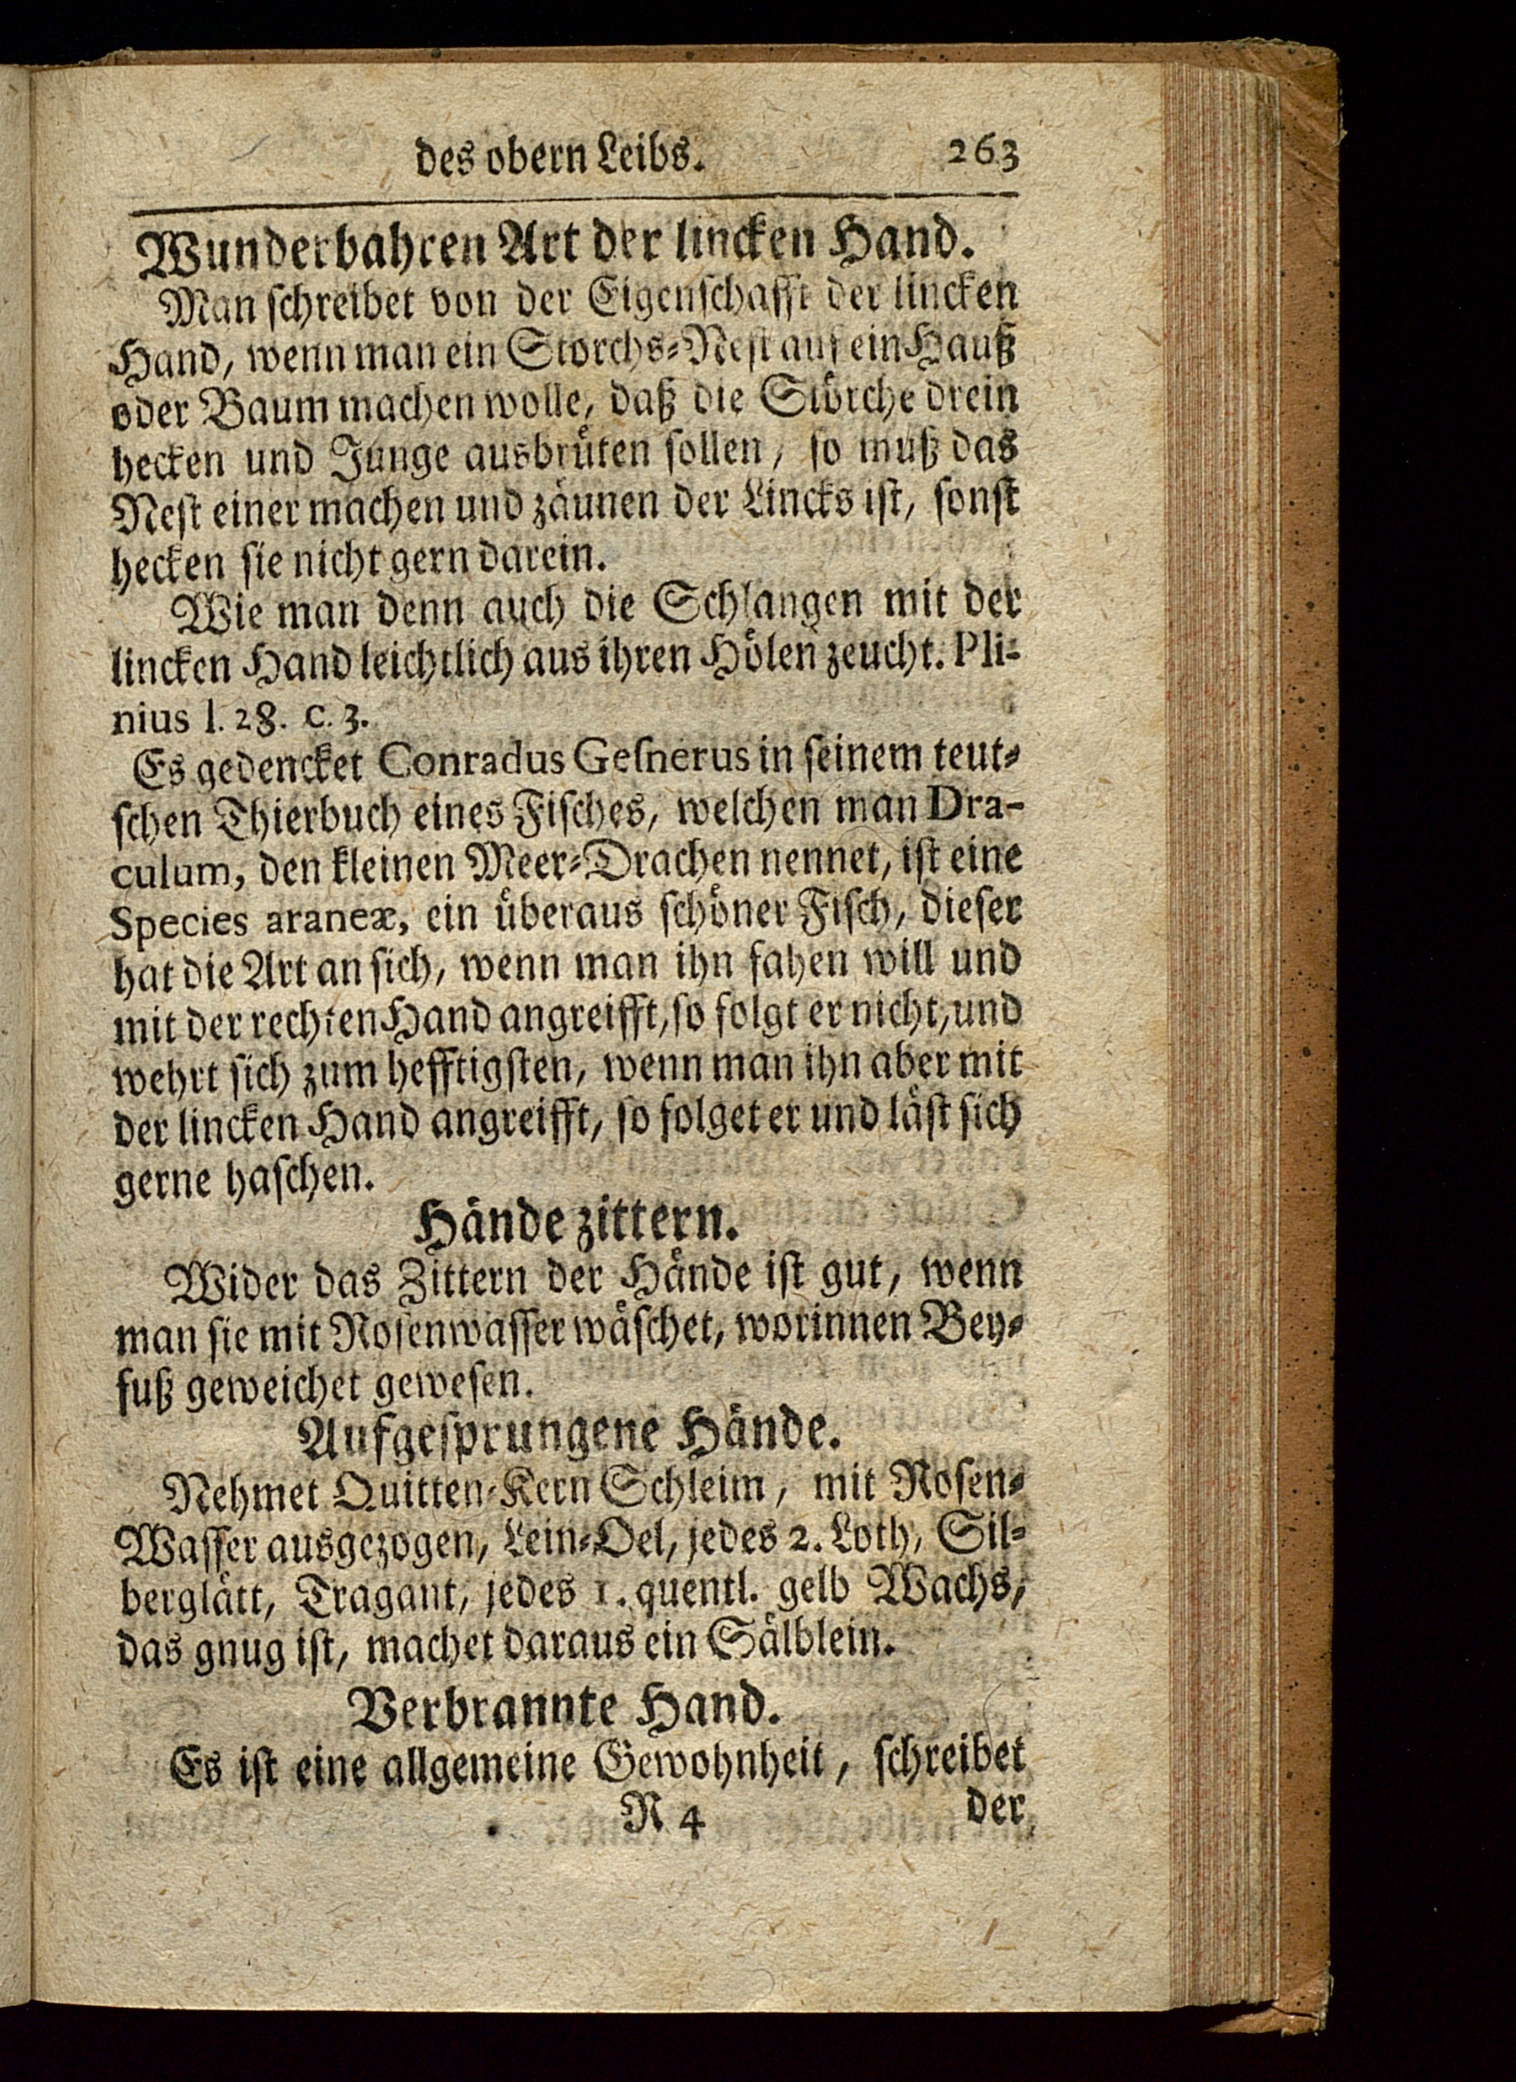 des obern Leibs. 263
Wunderbahren Art der lincken Hand.
Man schreibet von der Eigenschafft der lincken
Hand, wenn man ein Storchs-Nest auf ein Hauß
oder Baum machen wolle, daß die Störche drein
hecken und Junge ausbrüten sollen, so muß das
Nest einer machen und zäunen der Lincks ist, sonst
hecken sie nicht gern darein.
Wie man denn auch die Schlangen mit der
lincken Hand leichtlich aus ihren Hölen zeucht. Pli-
nius l. 28. c. 3.
Es gedencket Conradus Gesnerus in seinem teut-
schen Thierbuch eines Fisches, welchen man Dra-
culum, den kleinen Meer-Drachen nennet, ist eine
Species araneæ, ein überaus schöner Fisch, dieser
hat die Art an sich, wenn man ihn fahen will und
mit der rechten Hand angreifft, so folgt er nicht, und
wehrt sich zum hefftigsten, wenn man ihn aber mit
der lincken Hand angreifft, so folget er und läst sich
gerne haschen.
Hände zittern.
Wider das Zittern der Hände ist gut, wenn
man sie mit Rosenwasser wäschet, worinnen Bey-
fuß geweichet gewesen.
Aufgesprungene Hände.
Nehmet Quitten-Kern Schleim, mit Rosen-
Wasser ausgezogen, Lein-Oel, jedes 2. Loth, Sil-
berglätt, Tragant, jedes 1. quentl. gelb Wachs,
das gnug ist, machet daraus ein Sälblein.
Verbrannte Hand.
Es ist eine allgemeine Gewohnheit, schreibet
R 4 der